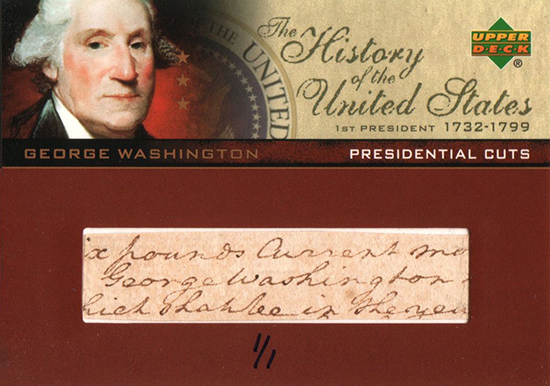 The
History
of the
United States
UPPER
DECK
®
THE UNITED
1ST PRESIDENT 1732-1799
GEORGE WASHINGTON
PRESIDENTIAL CUTS
ix pounds Current mo
George Washington
hich Shahlee in the yea
1/1